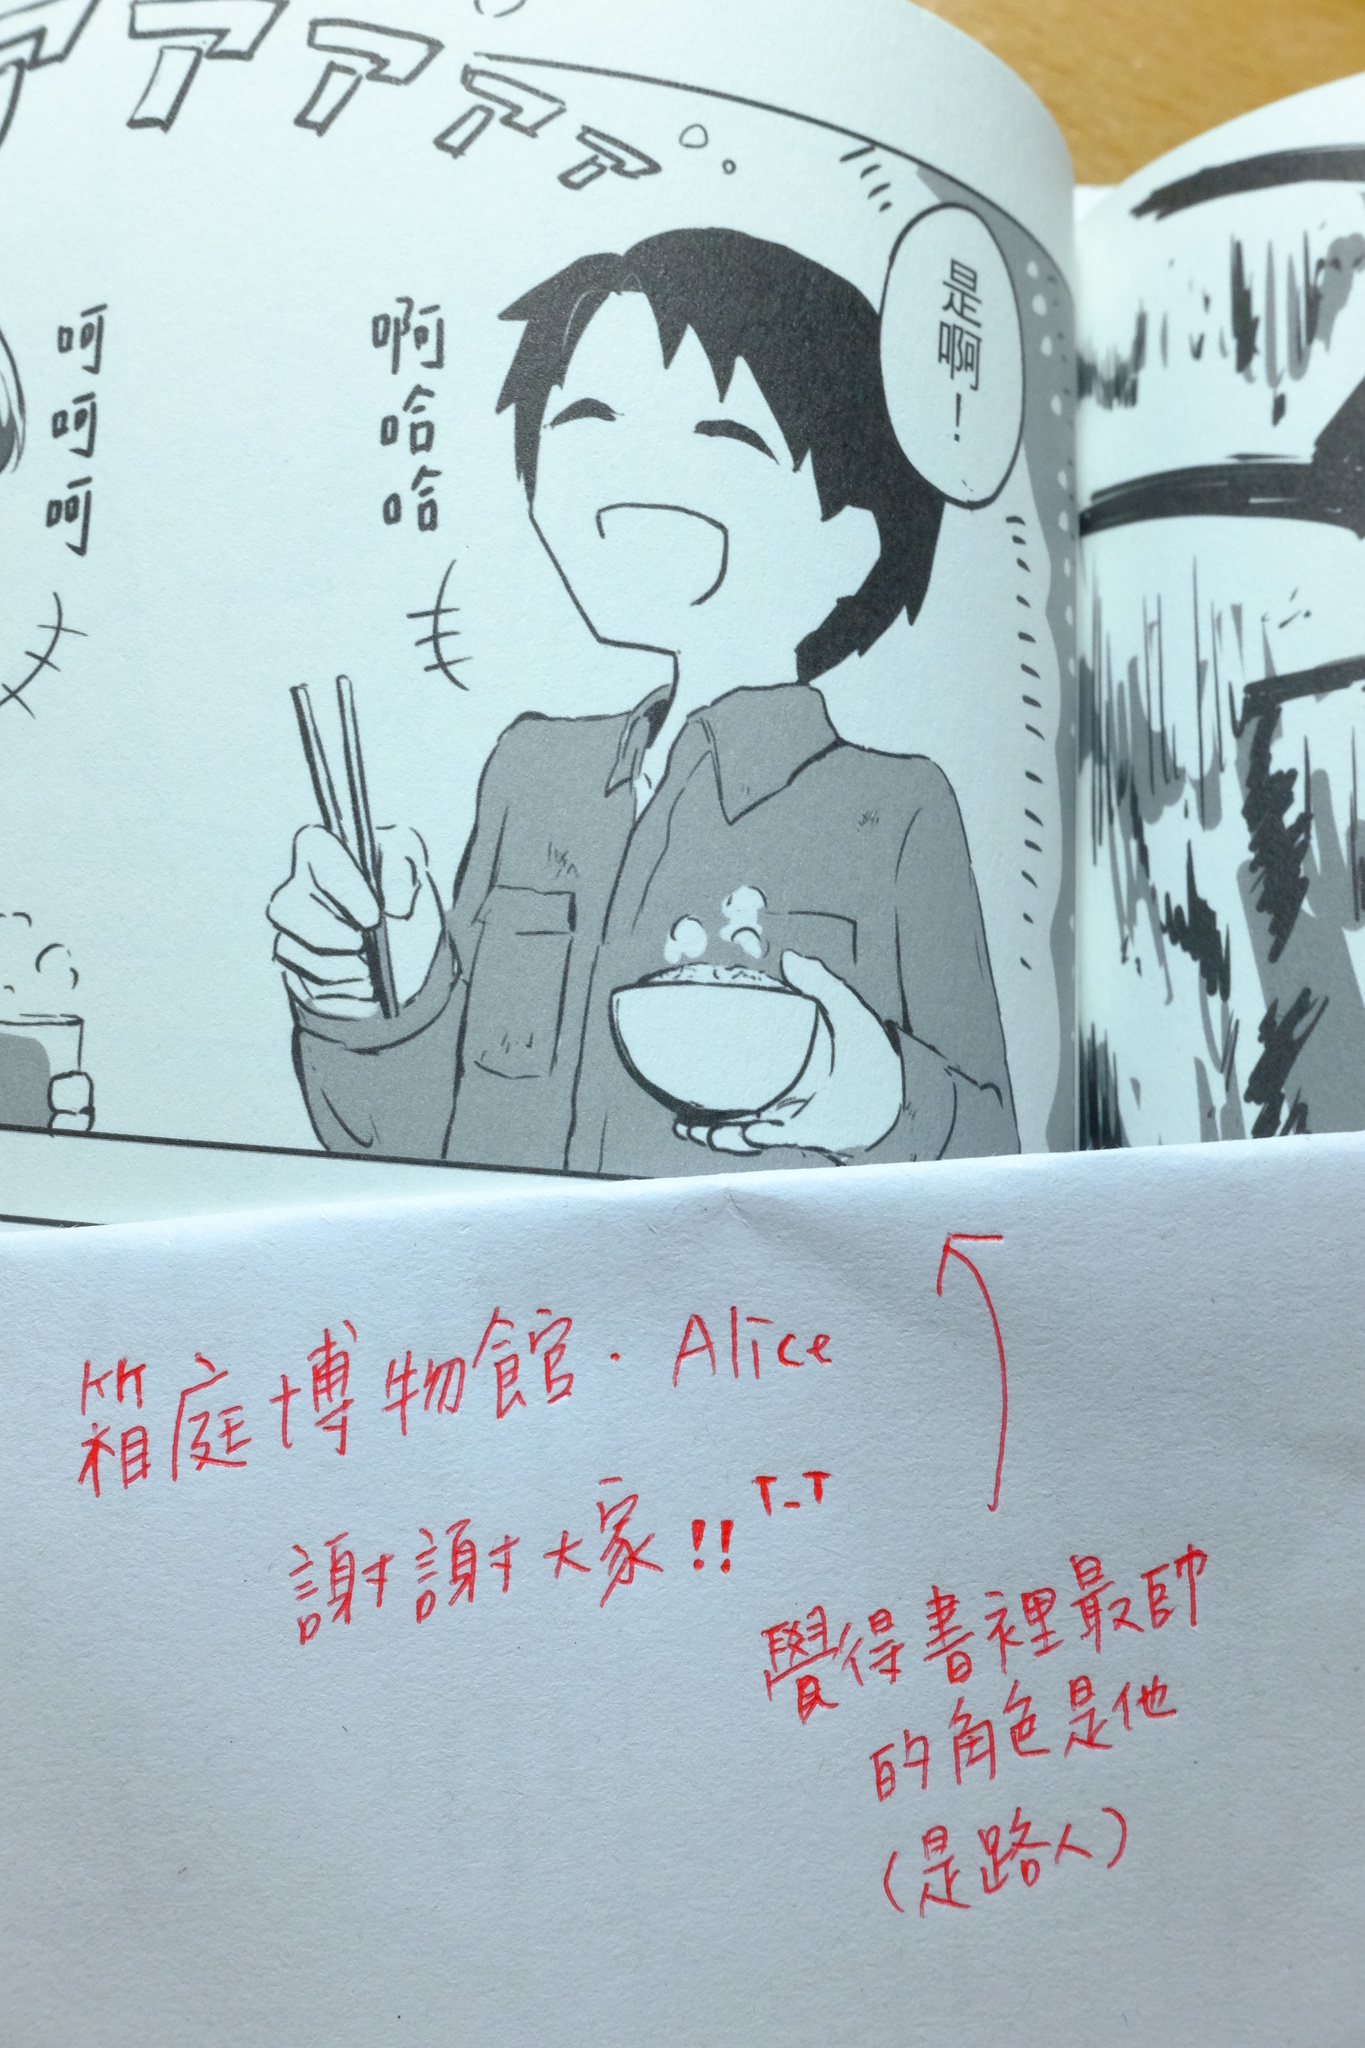 アアアアア
是啊！
啊哈哈
呵呵呵
箱庭博物館．Alice
謝謝大家!! T_T
覺得書裡最帥
的角色是他
(是路人)